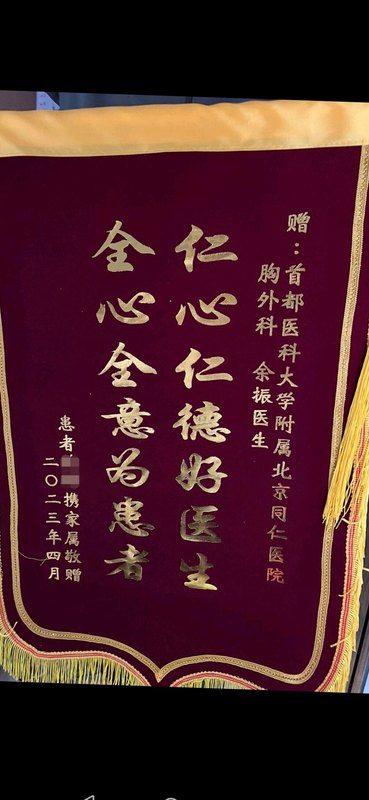 赠：首都医科大学附属北京同仁医院
胸外科 余振医生
仁心仁德好医生
全心全意为患者
患者 携家属敬赠
二〇二三年四月